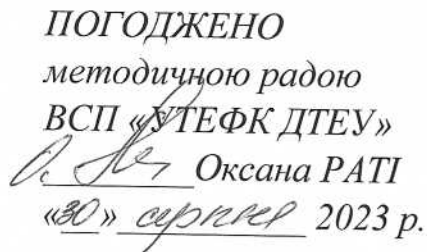 ПОГОДЖЕНО
методичною радою
ВСП «УТЕФК ДТЕУ»
Оксана РАТІ
«30» серпня 2023 р.